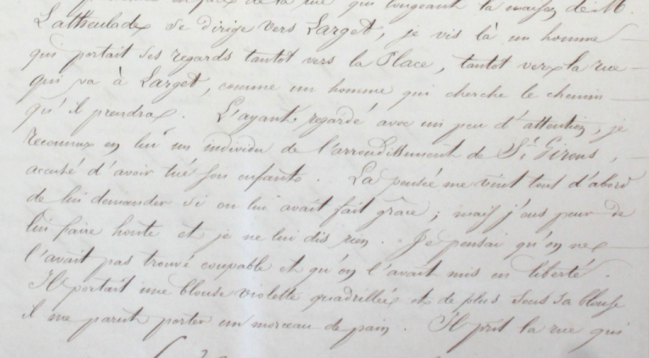 de la rue qui longeant la maison de M.
Latheulade se dirige vers Larget, je vis là un homme
qui portait ses regards tantôt vers la Place, tantôt vers la rue
qui va à Larget, comme un homme qui cherche le chemin
qu'il prendra. L'ayant regardé avec un peu d'attention, je
reconnus en lui un individu de l'arrondissement de St Girons,
accusé d'avoir tué son enfant. La pensée me vint tout d'abord
de lui demander si on lui avait fait grâce ; mais j'eus peur de
lui faire honte et je ne lui dis rien. Je pensai qu'on ne
l'avait pas trouvé coupable et qu'on l'avait mis en liberté.
Il portait une blouse violette quadrillée et de plus sous sa blouse
il me parut porter un morceau de pain. Il prit la rue qui